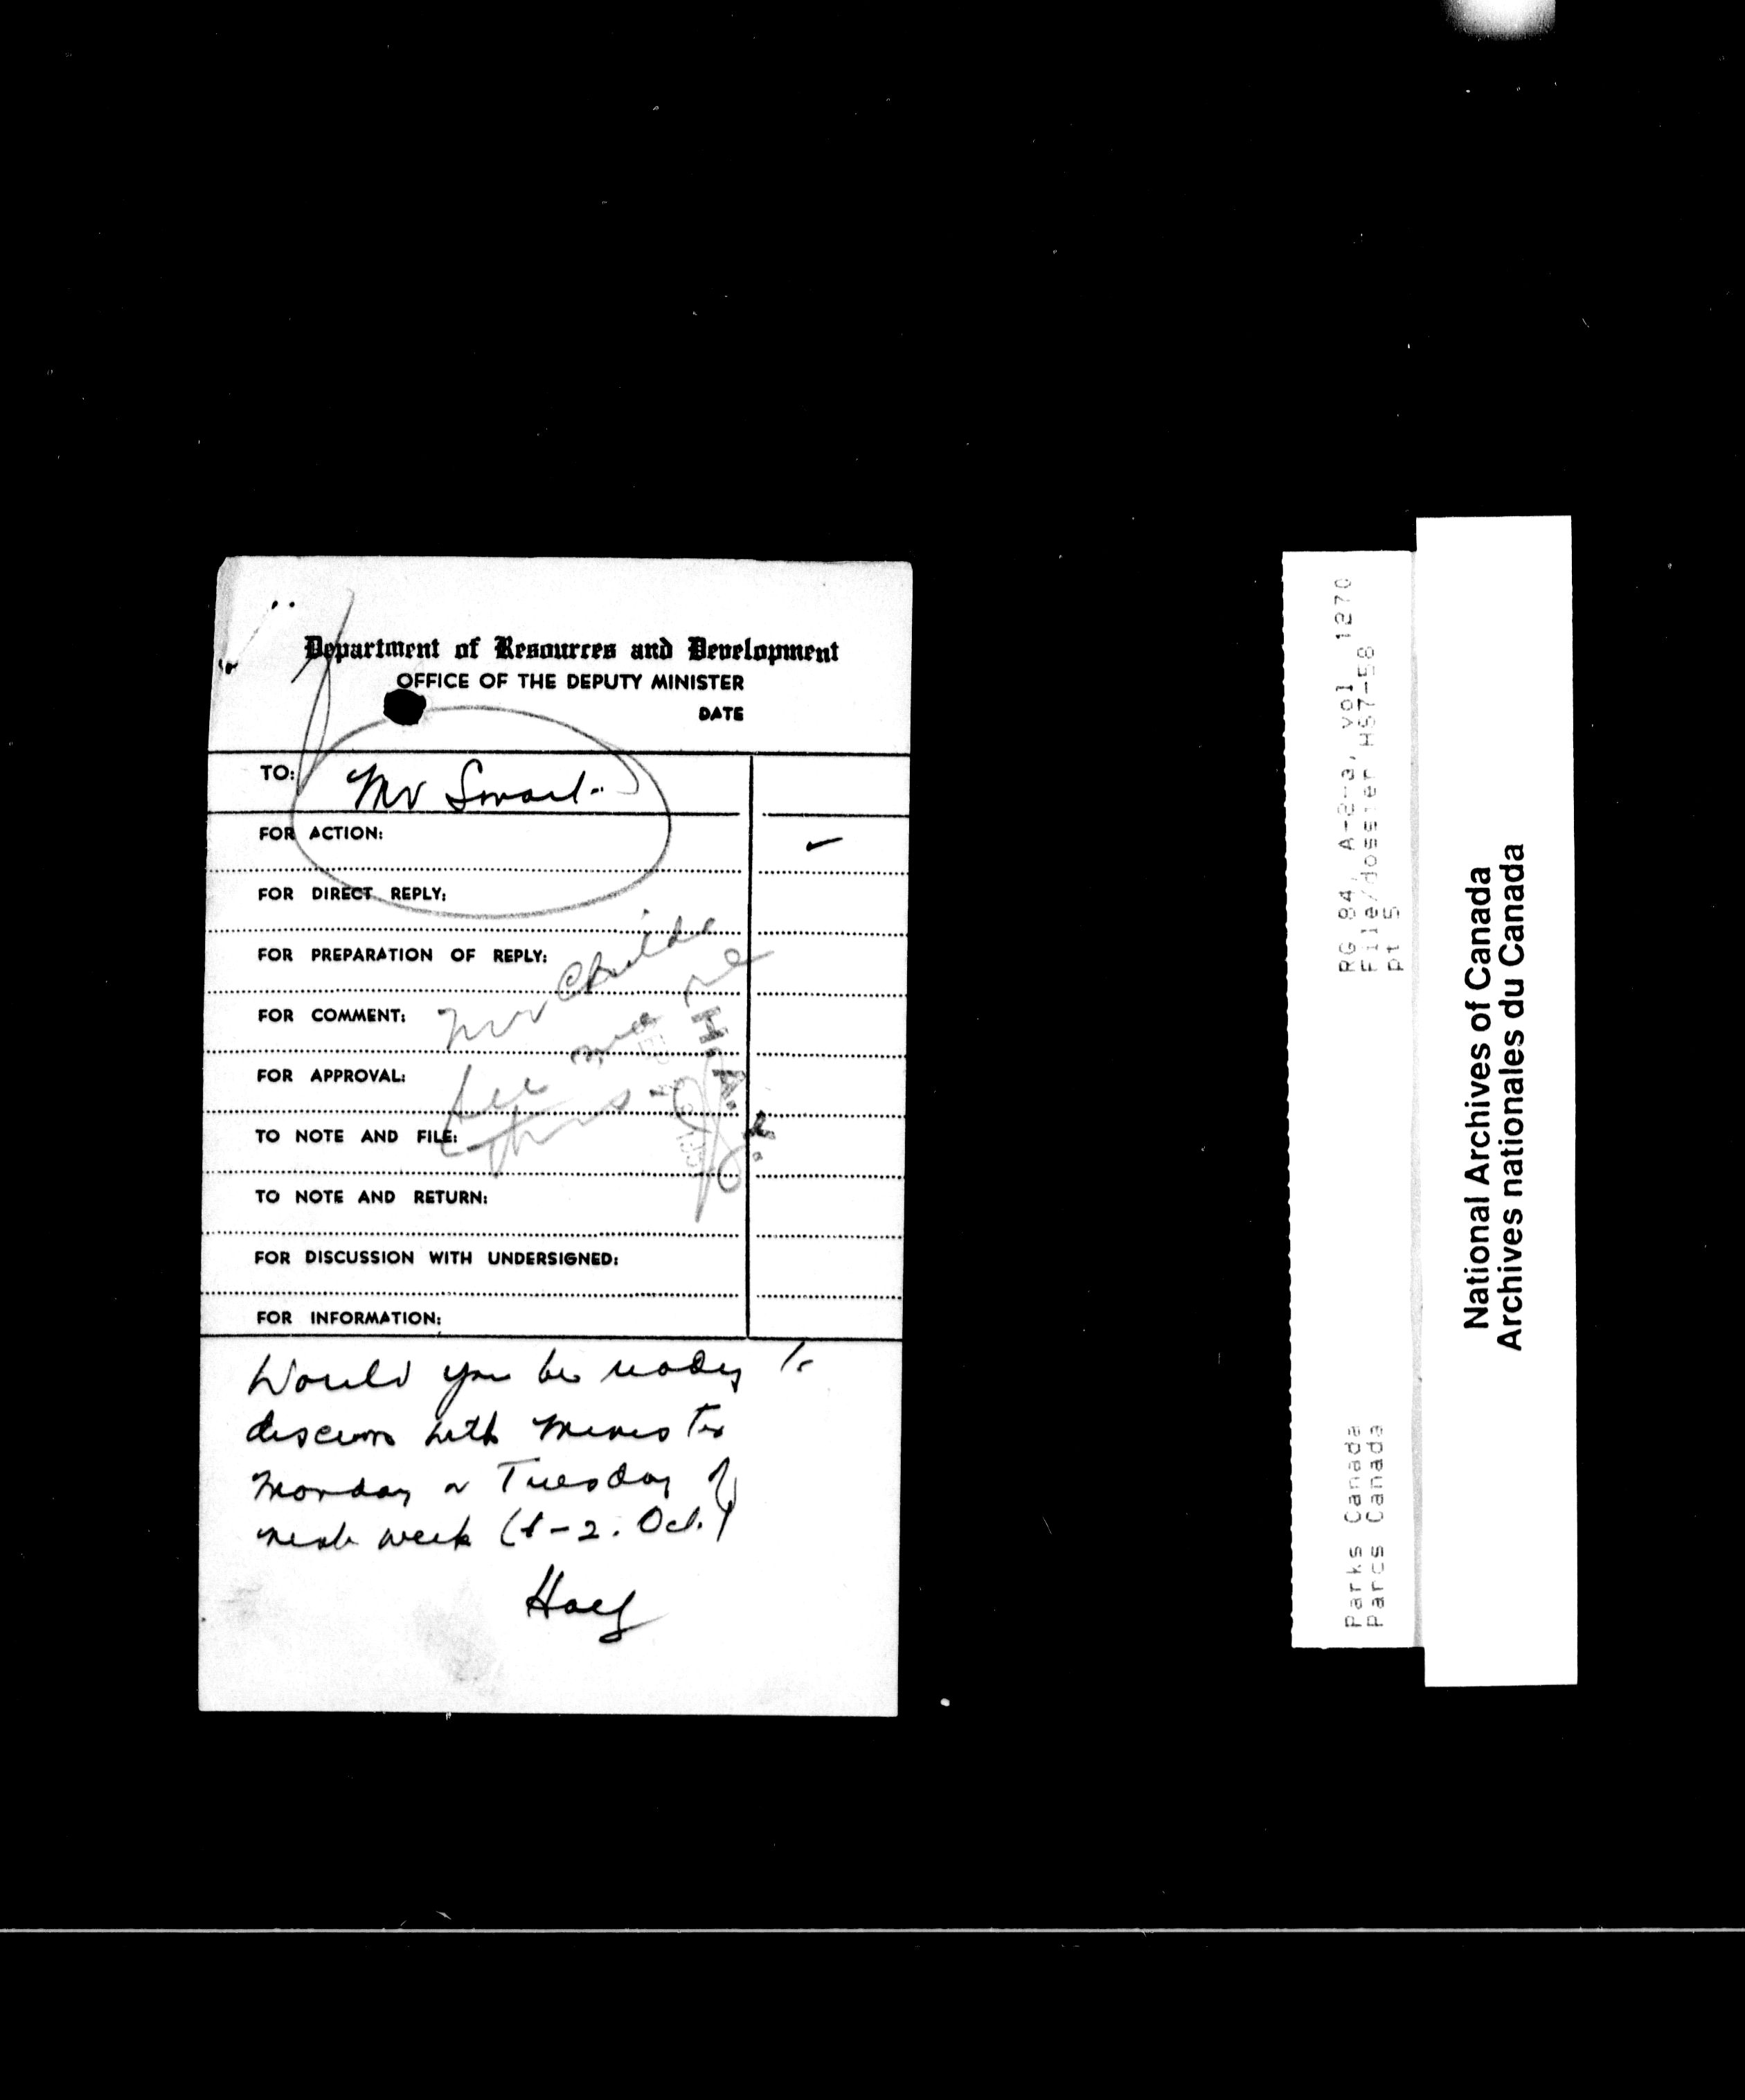 Department of Resources and Development
OFFICE OF THE DEPUTY MINISTER
DATE
TO: Mr Smart.
FOR ACTION: ✓
FOR DIRECT REPLY:
FOR PREPARATION OF REPLY:
FOR COMMENT:
FOR APPROVAL:
TO NOTE AND FILE:
TO NOTE AND RETURN:
FOR DISCUSSION WITH UNDERSIGNED:
FOR INFORMATION:
Mr Childs
see me
this
Would you be ready to
discuss with Minister
Monday or Tuesday of
next week (1-2. Oct.)
RG 84, A-2-a, vol 1270
File/dossier HS7-58
pt 5
Parks Canada
Parcs Canada
National Archives of Canada
Archives nationales du Canada